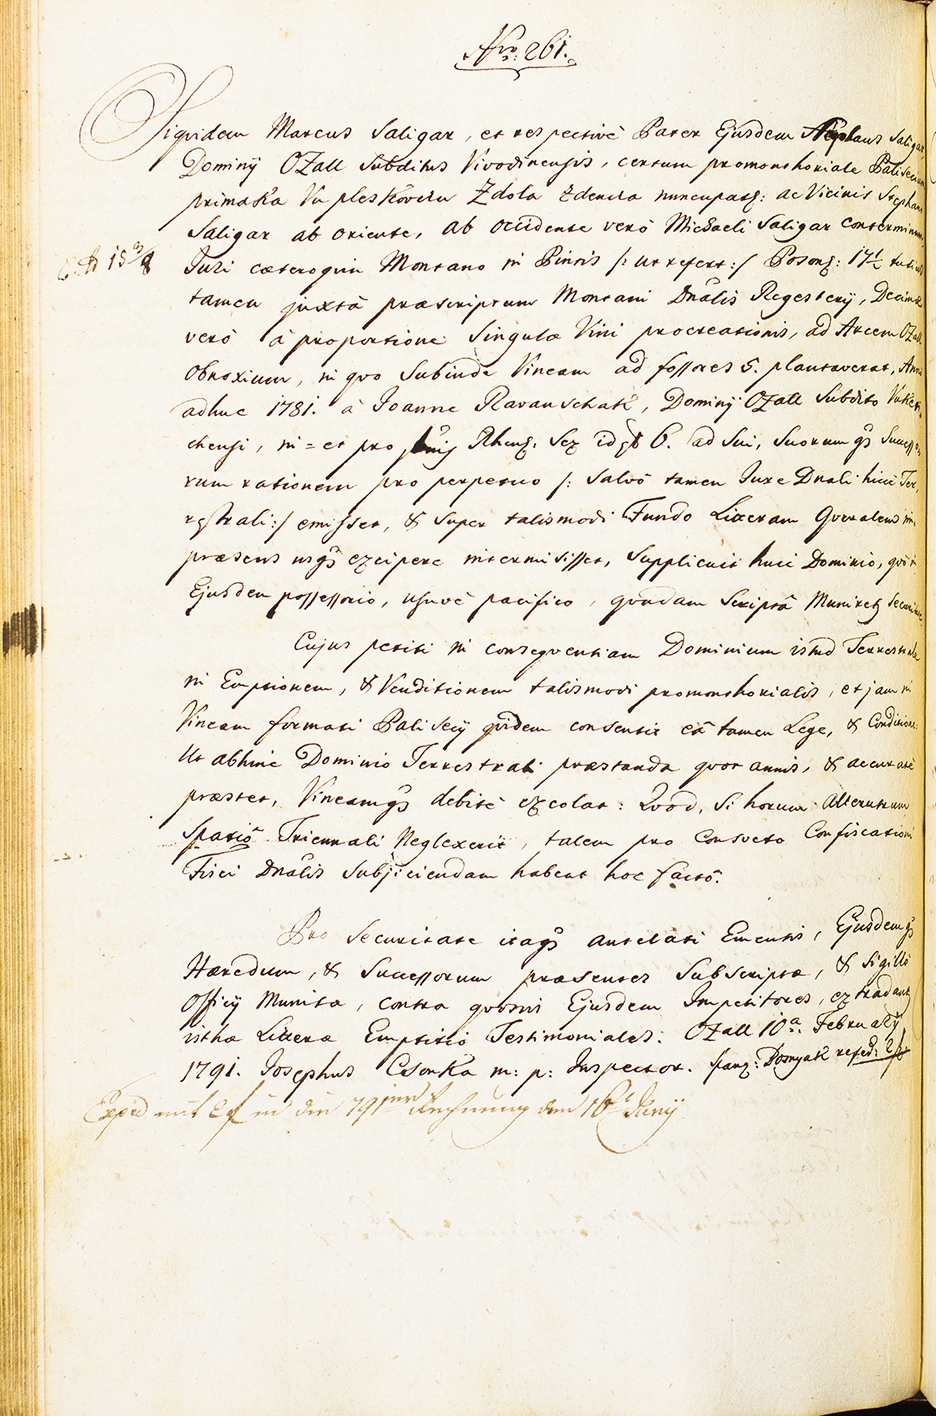 Nro: 261.
Siquidem Marcus Saligar, et respective Pater Ejusdem Stephanus Saligar
Dominÿ Ozall Subditus Vivodinensis, certum promonthoriale Palisecium
primaka Vu pleskovclu Zdola Zdencla nuncupatq: ac Vicinis Stephano
Saligar ab oriente, ab occidente verò Michaeli Saligar conterminum,
15 3/8
Juri cæteroquin Montano in Pintis /: ut refert :/ Posonq: 17 1/2
tamen juxtà præscriptum Montani Dnālis Regesterÿ, Decimæ
verò à proportione Singulæ Vini procreationis, ad Arcem Ozall
obnoxium, in quo Subinde Vineam ad fossores 5. plantaverat, Anno
adhuc 1781. à Joanne Ravanschak, Dominÿ Ozall Subdito
chensi, in = et pro Rhenq. Sex id est 6. ad Sui, Suorumqs Successo
rum rationem pro perpetuo /: Salvò tamen Jure Dnali huic Ter,
restrali :/ emisset, & Super talismodi Fundo Literam Qveralens in
præsens usqs excipere intermisisset, Supplicuit huic Dominio, qvòt
Ejusdem possessorio, usuvè pacifico, quadam Scriptâ Muniretq Securitate.
Cujus petiti in conseqventiam Dominium istud Terrestrale
in Emptionem, & Venditionem talismodi promonthorialis, et jam in
Vineam formati Palisecÿ qvidem consentit eâ tamen Lege, & Conditione
Ut abhinc Dominio Terrestrali præstanda qvot annis, & accuratè
præstet, Vineamqs debitè excolat: Qvòd, Si horum Alterutrum
Spatiô Triennali Neglexerit, talem pro Consveto Confiscationi
Fisci Dnālis Subjiciendam habeat hoc factô.
Pro Securitate itaqs antelati Ementis, Ejusdemqs
Hæredum, & Successorum præsentes Subscriptæ, & Sigillô
Officÿ Munitæ, contra qvosvis Ejusdem Impetitores, extradant
isthæ Literæ Emptitiò Testimoniales. Ozall 10a. Februarÿ
1791. Josephus Csonka m: p: Inspector. Franz: Dornyak
Exped mit 2f in die 791inn Rechnung den 16t Junÿ